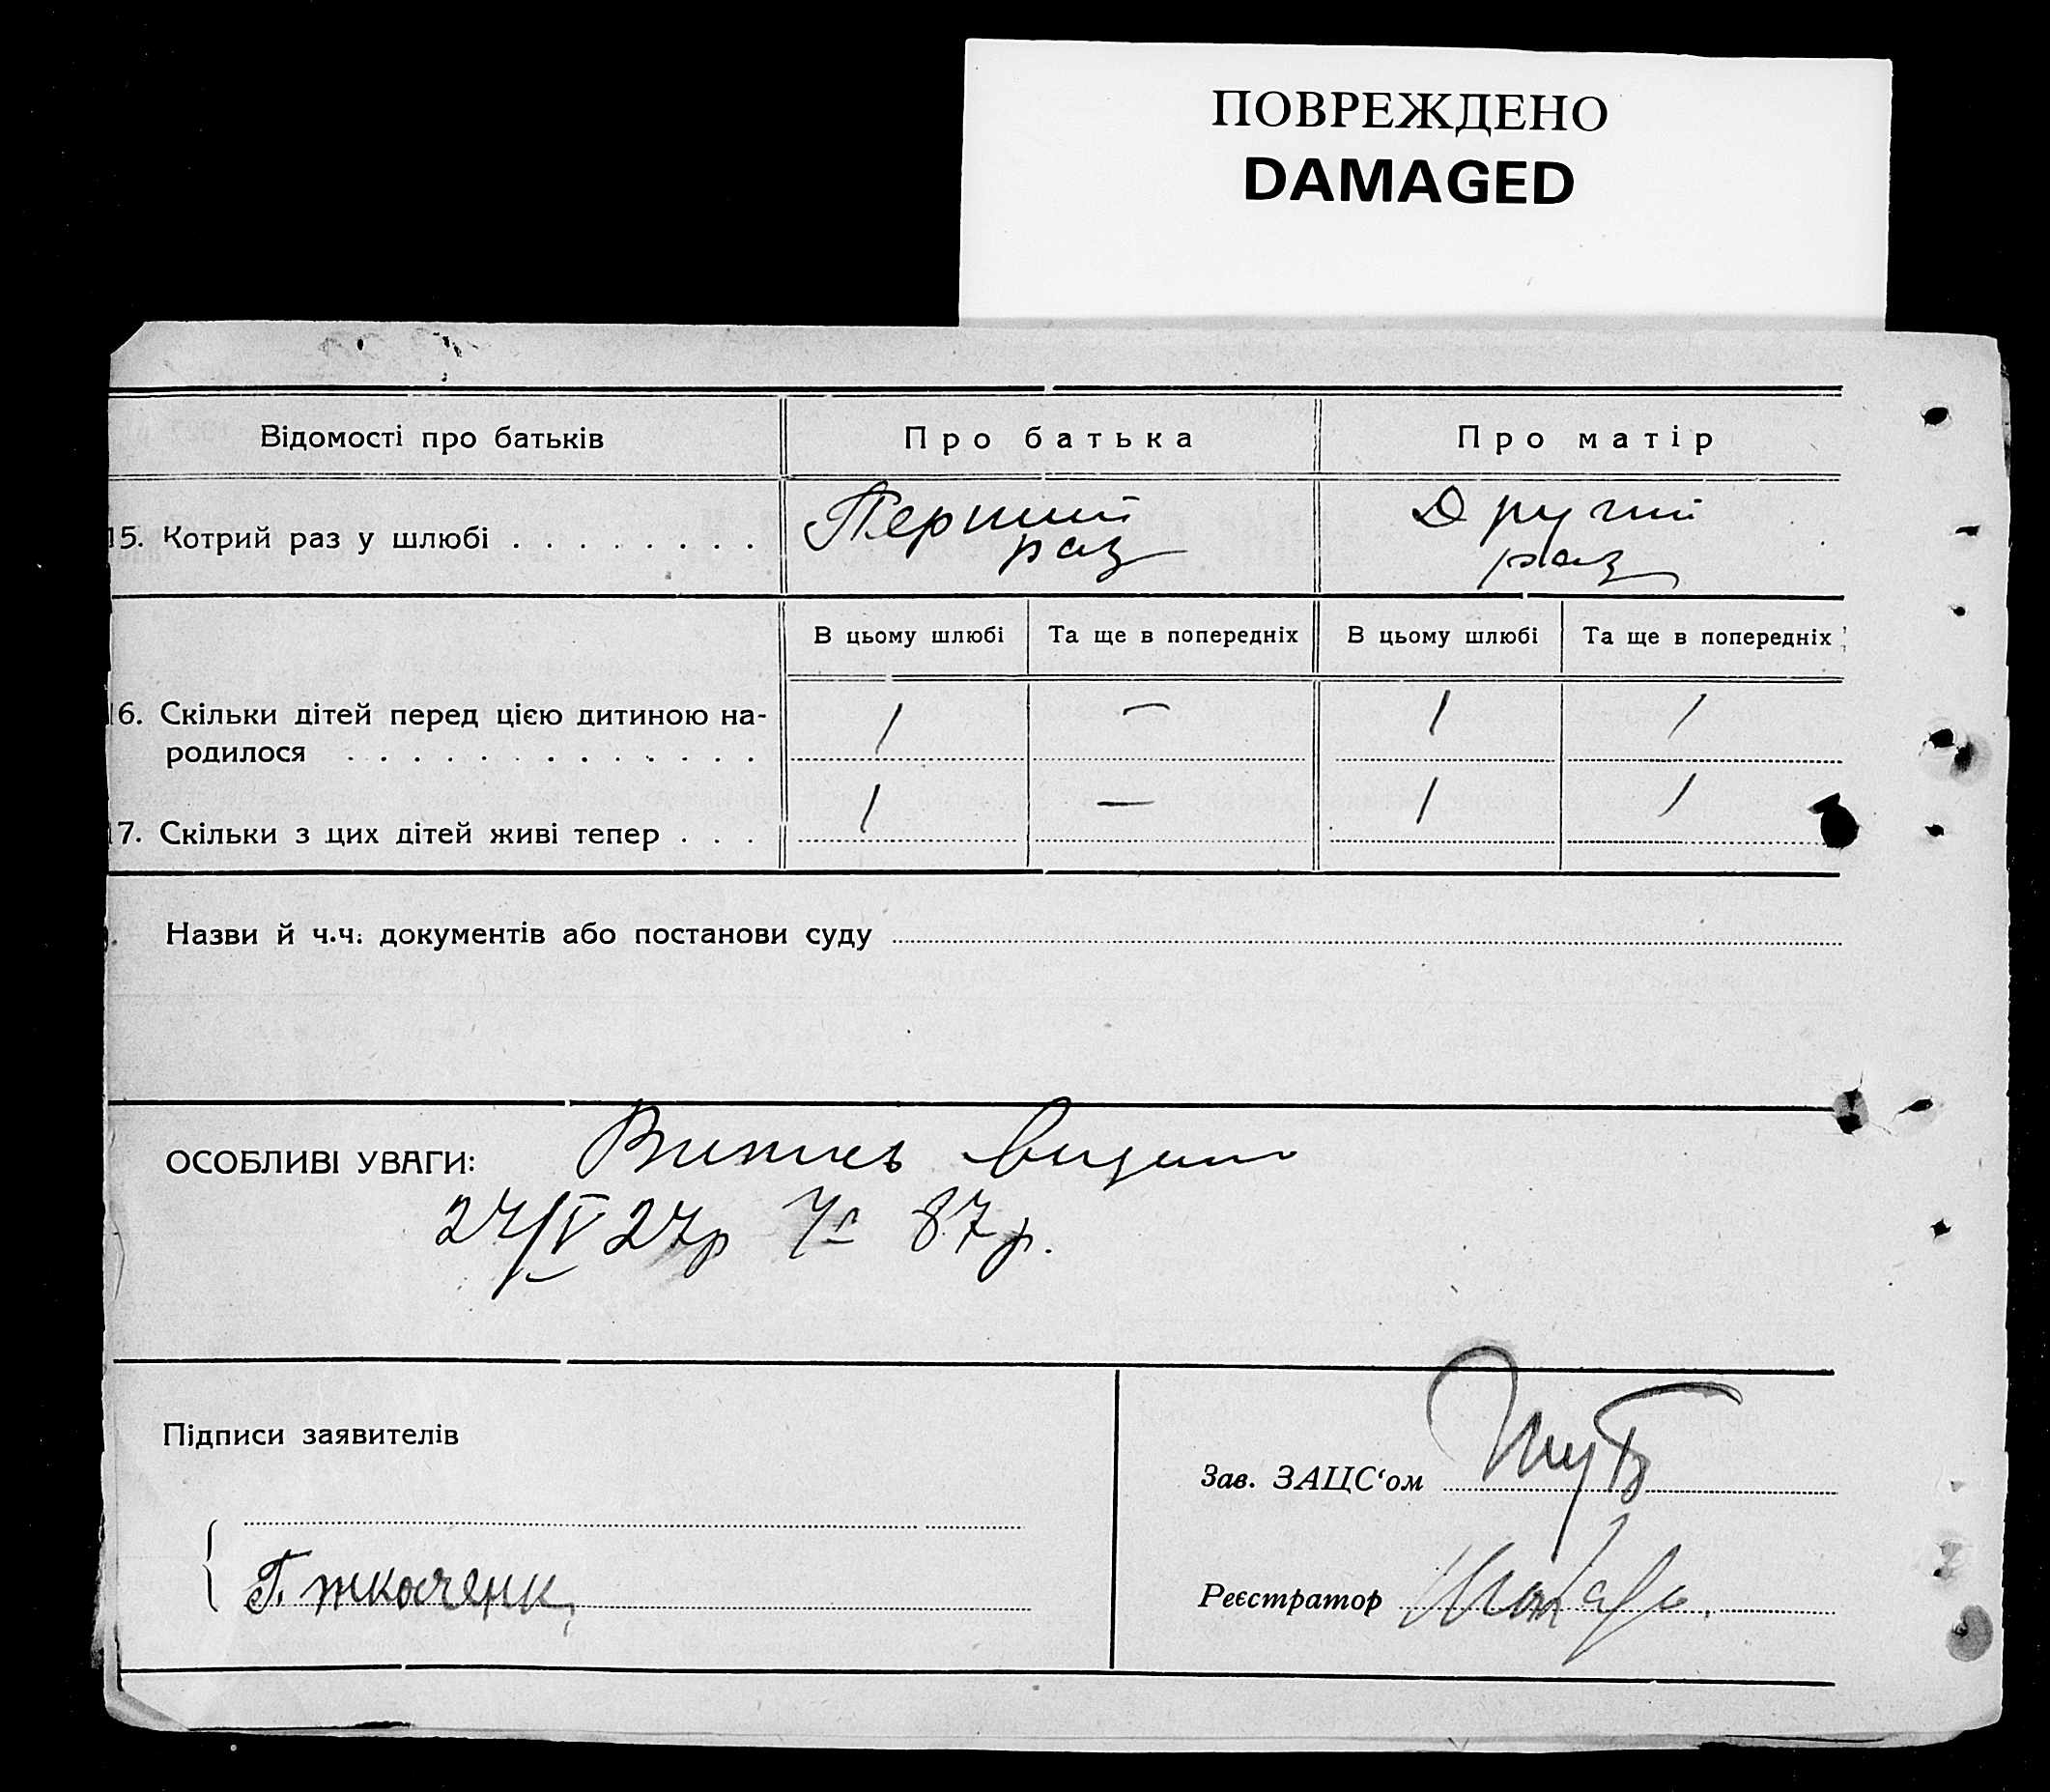 ПОВРЕЖДЕНО
DAMAGED
Відомості про батьків
Про батька
Про матір
15. Котрий раз у шлюбі . . . . . . . .
Перший
раз
Другий
раз
В цьому шлюбі
Та ще в попередніх
В цьому шлюбі
Та ще в попередніх
16. Скільки дітей перед цією дитиною на-
родилося . . . . . . . . . . . . .
1 — 1 1
17. Скільки з цих дітей живі тепер . . .
1 — 1 1
Назви й ч.ч. документів або постанови суду
ОСОБЛИВІ УВАГИ: Випись видано
27/V 27р 87р.
Підписи заявителів
Г. ткаченк
Зав. ЗАЦС‘ом
Реєстратор